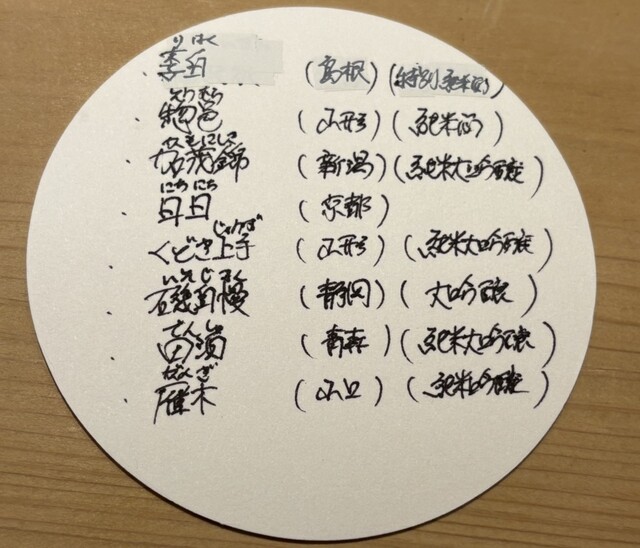 りはく
・李白 (島根) (特別純米酒)
そうむら
・惣邑 (山形) (純米酒)
かもにしき
・加茂錦 (新潟) (純米大吟醸)
にちにち
・日日 (京都)
じょうず
・くどき上手 (山形) (純米大吟醸)
いそじまん
・磯自慢 (静岡) (大吟醸)
でんしゅ
・田酒 (青森) (純米大吟醸)
がんぎ
・雁木 (山口) (純米吟醸)